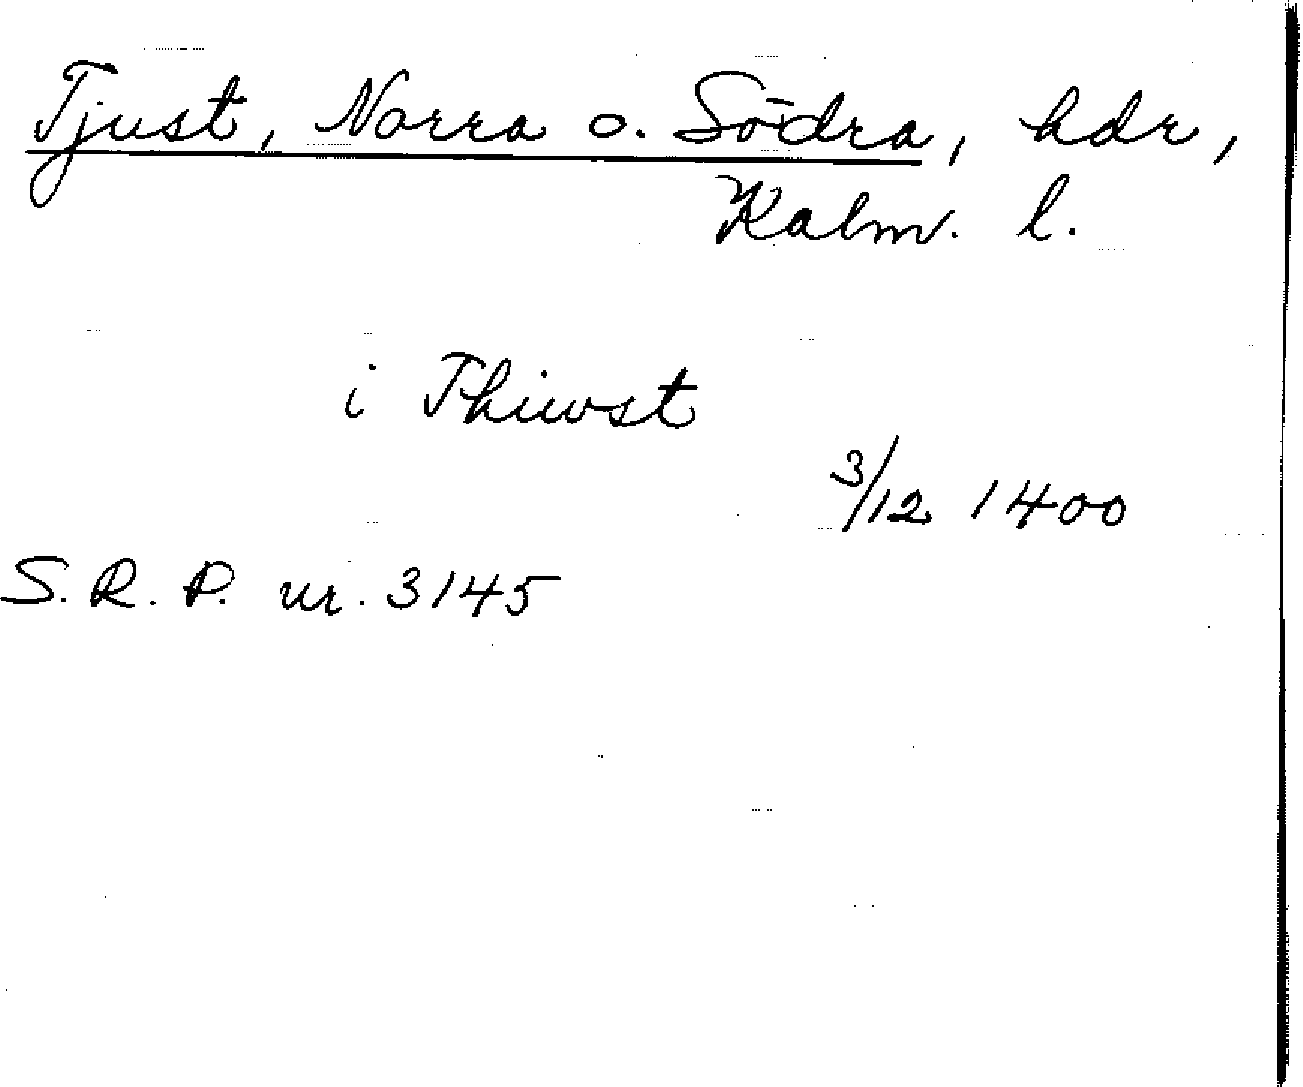 Tjust, Norra o. Södra, hdr,
Kalm. l.
i Thiwst
3/12 1400
S. R. P. nr. 3145